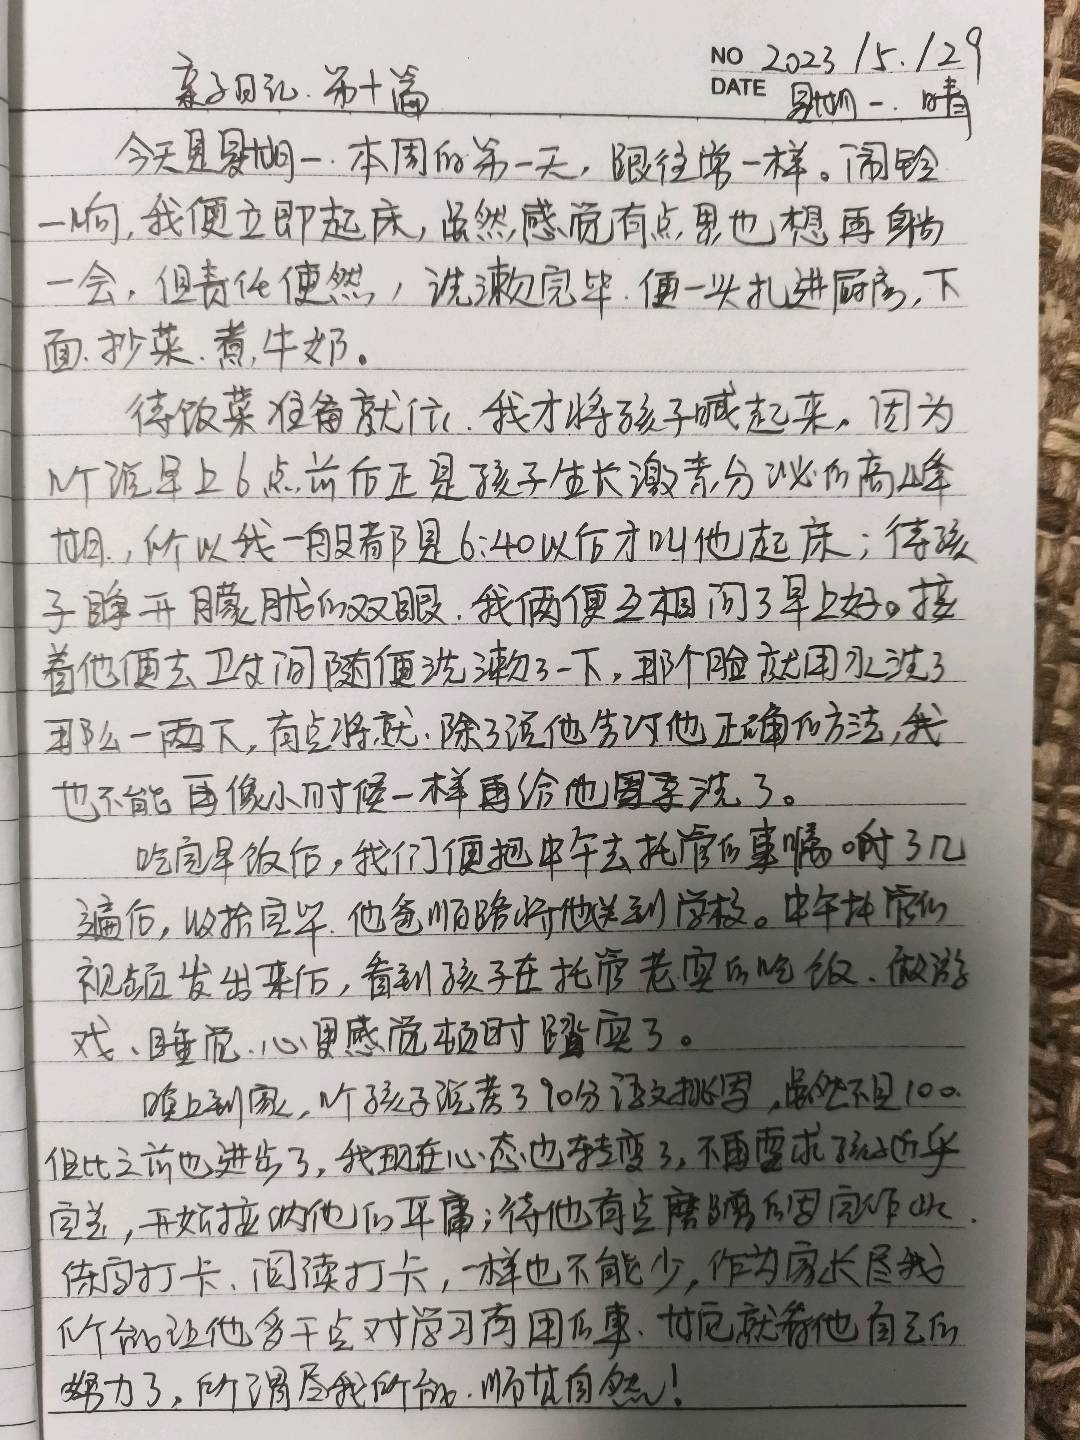 NO 2023/5./29
亲子日记.第十篇
DATE 星期一.晴
今天是星期一.本周的第一天，跟往常一样。闹铃
一响，我便立即起床，虽然感觉有点累也想再躺
一会，但责任使然，洗漱完毕.便一头扎进厨房，下
面.抄菜.煮牛奶。
待饭菜准备就位.我才将孩子喊起来。因为
听说早上6点前后正是孩子生长激素分泌的高峰
期.，所以我一般都是6:40以后才叫他起床；待孩
子睁开朦胧的双眼.我俩便互相问了早上好。接
着他便去卫生间随便洗漱了一下，那个脸就用水洗了
那么一两下，有点将就.除了说他告诉他正确的方法，我
也不能再像小时候一样再给他洗了。
吃完早饭后，我们便把中午去托管的事嘱咐了几
遍后，收拾完毕.他爸顺路将他送到学校。中午托管的
视频发出来后，看到孩子在托管老实的吃饭、做游
戏、睡觉.心里感觉顿时踏实了。
晚上到家，听孩子说考了90分语文，虽然不是100.
但比之前也进步了，我现在心态也转变了，不再要求孩子近乎
完美，开始接纳他的平庸；待他有点磨蹭的写完作业.
练字打卡、阅读打卡，一样也不能少，作为家长尽我
所能让他多干点对学习有用的事.其它就看他自己的
努力了，所谓尽我所能.顺其自然！